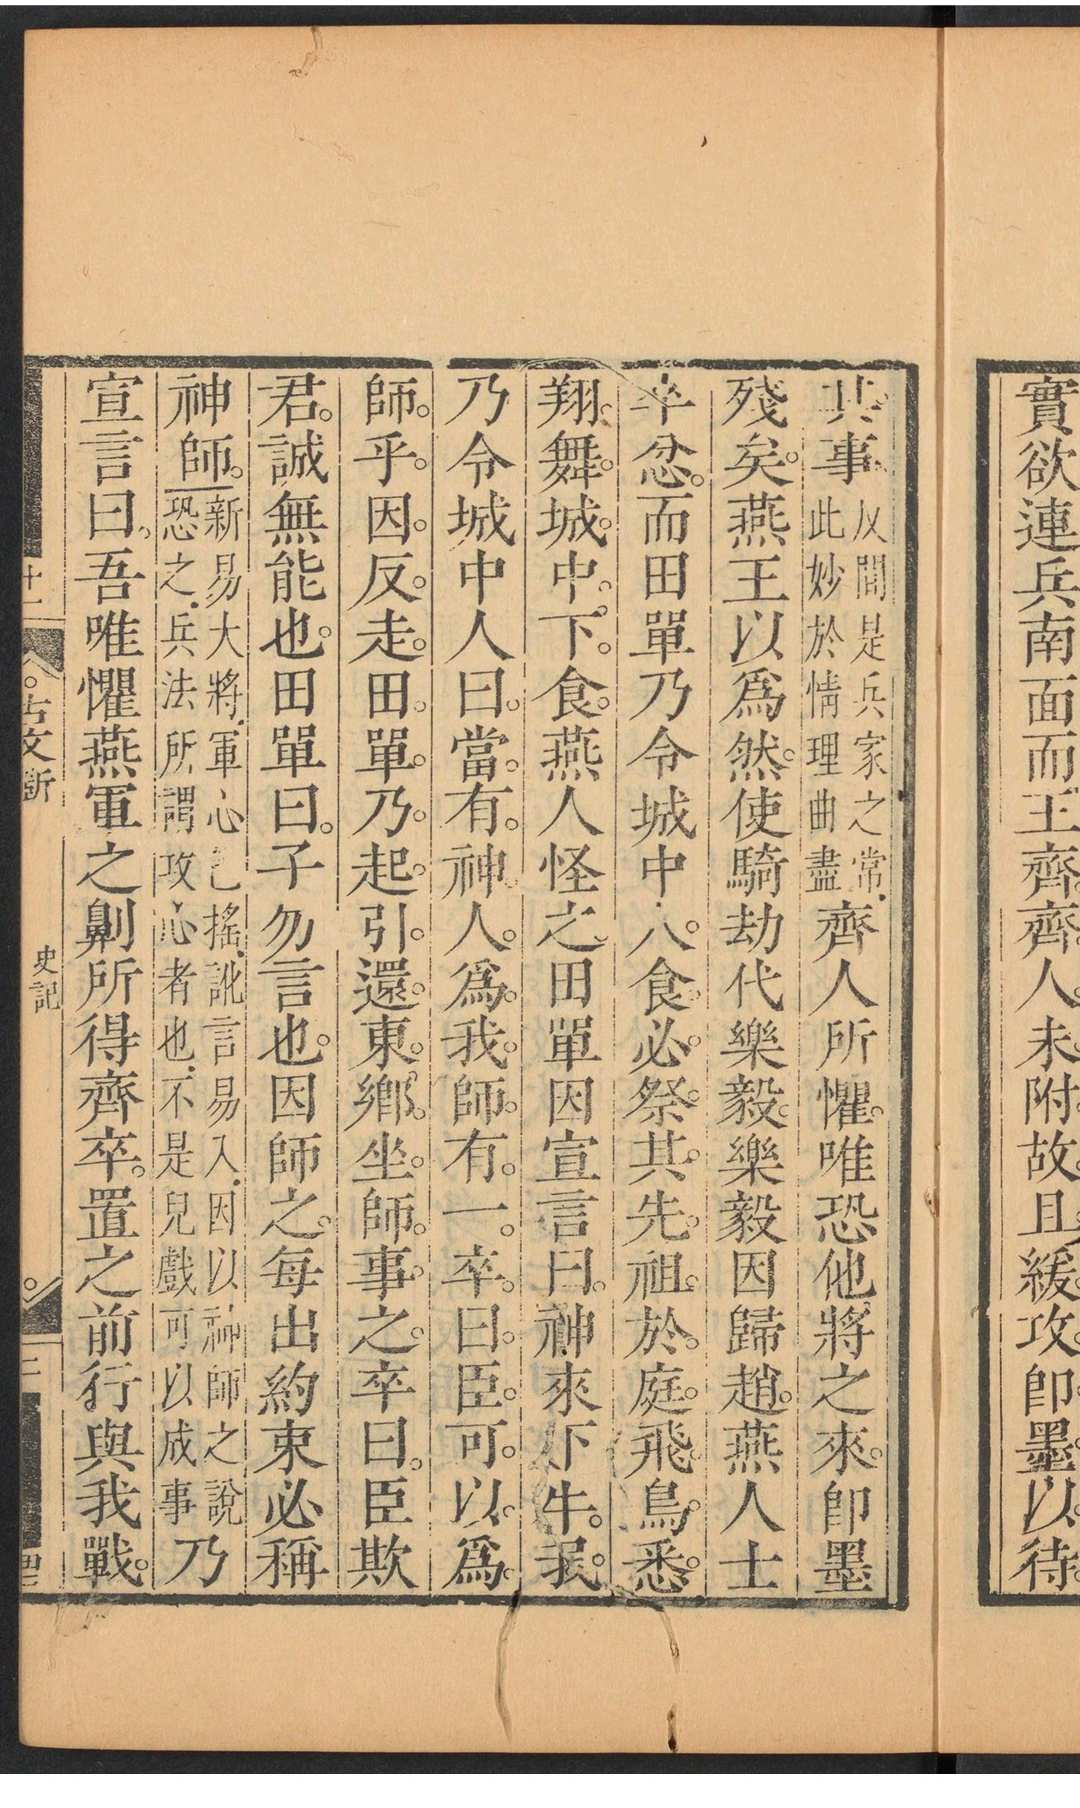 實欲連兵南面而王齊齊人未附故且緩攻卽墨以待
其事反間是兵家之常此妙於情理曲盡齊人所懼唯恐他將之來卽墨
殘矣燕王以爲然使騎劫代樂毅樂毅因歸趙燕人士
卒忿而田單乃令城中人食必祭其先祖於庭飛鳥悉
翔舞城中下食燕人怪之田單因宣言曰神來下
乃令城中人曰當有神人爲我師有一卒曰臣可以爲
師乎因反走田單乃起引還東鄉坐師事之卒曰臣欺
君誠無能也田單曰子勿言也因師之每出約束必稱
神師新易大將軍心已搖訛言易入因以神師之說恐之兵法所謂攻心者也不是兒戲可以成事乃
宣言曰吾唯懼燕軍之劓所得齊卒置之前行與我戰
古文斲
史記